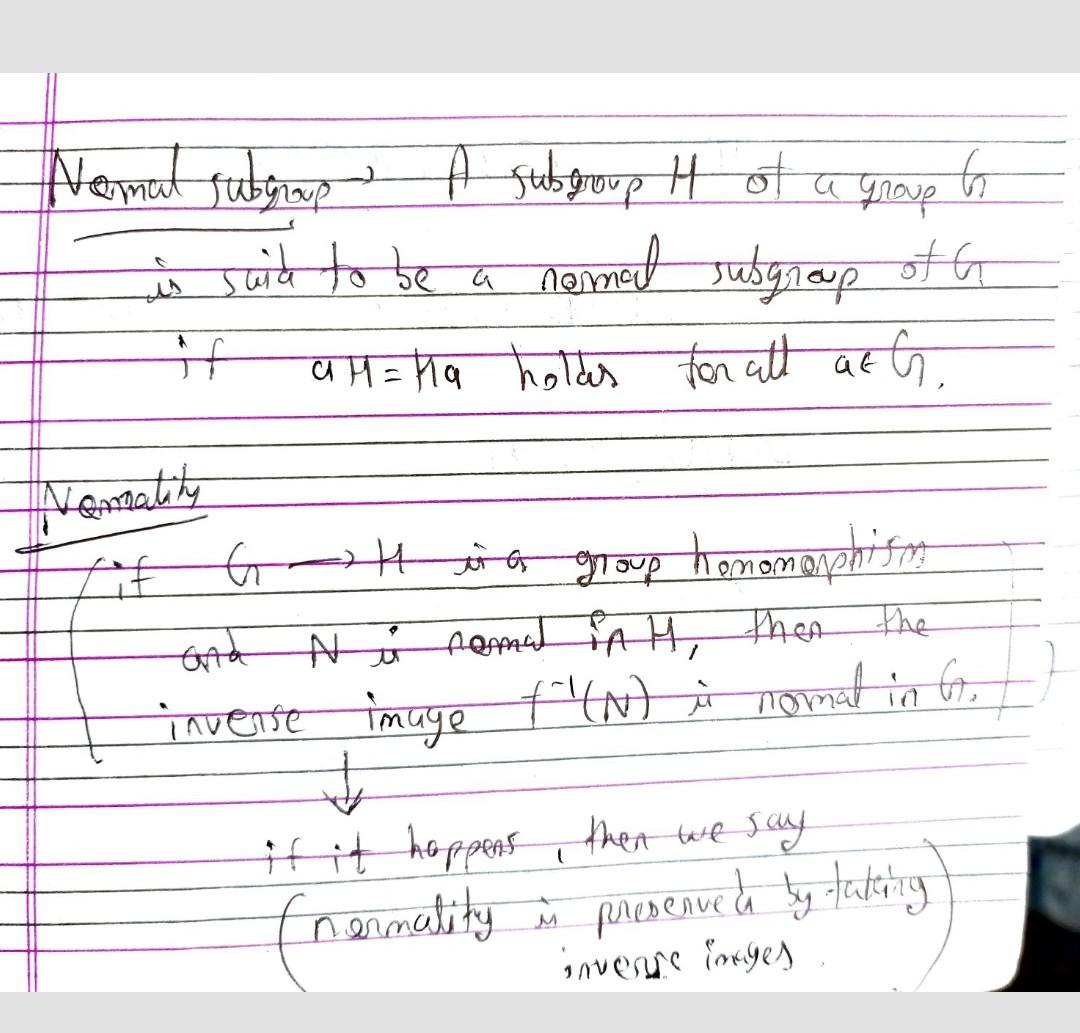 Normal subgroup → A subgroup H of a group G
is said to be a normal subgroup of G
if aH = Ha holds for all a ∈ G.
Normality
(if G → H is a group homomorphism
and N is normal in H, then the
inverse image f⁻¹(N) is normal in G.)
↓
if it happens, then we say
(normality is preserved by taking
inverse images.)